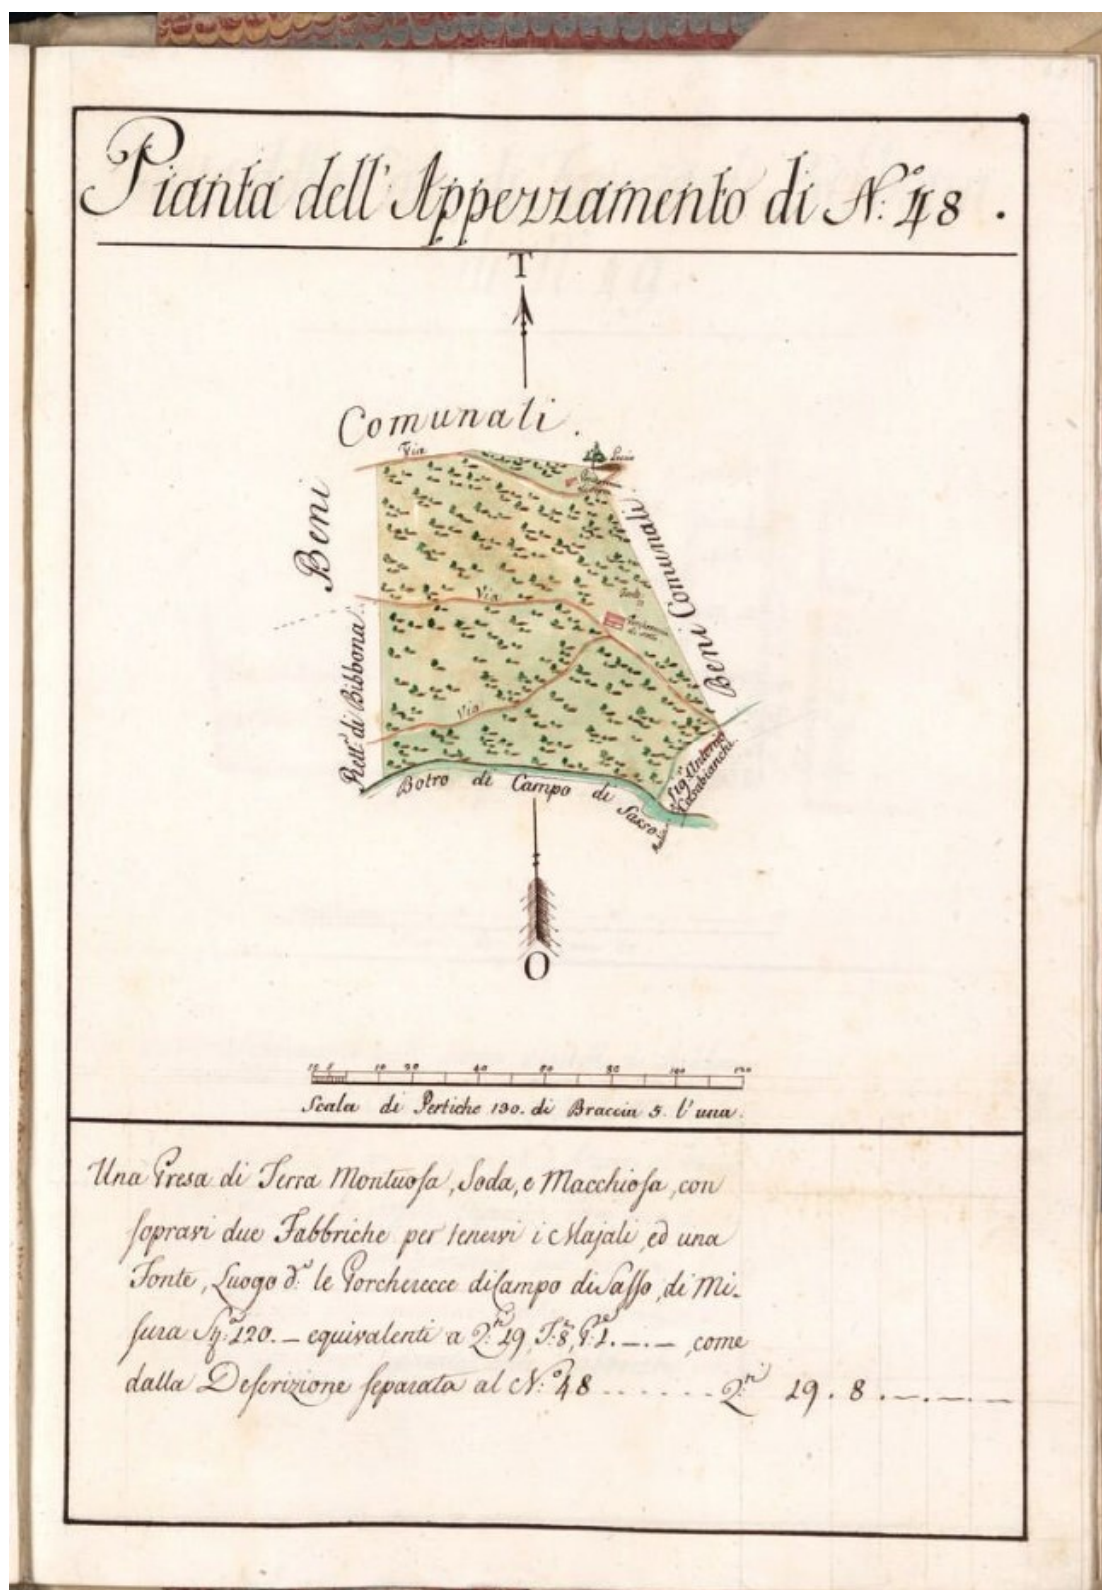 Pianta dell' Appezzamento di N.º 48.
T
Comunali.
Via
Leccio
Beni
Beni Comunali.
Via
Fonte
Rett.ª di Bibbona
Via
Sig.ᵉ Antonio
Casabianchi.
Botro di Campo di Sasso
O
10 5 10 20 40 60 80 100 120
Scala di Pertiche 130. di Braccia 5. l'una.
Una Presa di Terra Montuosa, Soda, e Macchiosa, con
sopravi due Fabbriche per tenervi i Majali, ed una
Fonte, Luogo d.º le Porcherecce di Campo di Sasso, di Mi-
sura Sq: 120. – equivalenti a Q.ⁿⁱ 19, S: 8, P: 1. –.–, come
dalla Descrizione separata al N.º 48 ...... Q.ⁿⁱ 19. 8. –.–.–